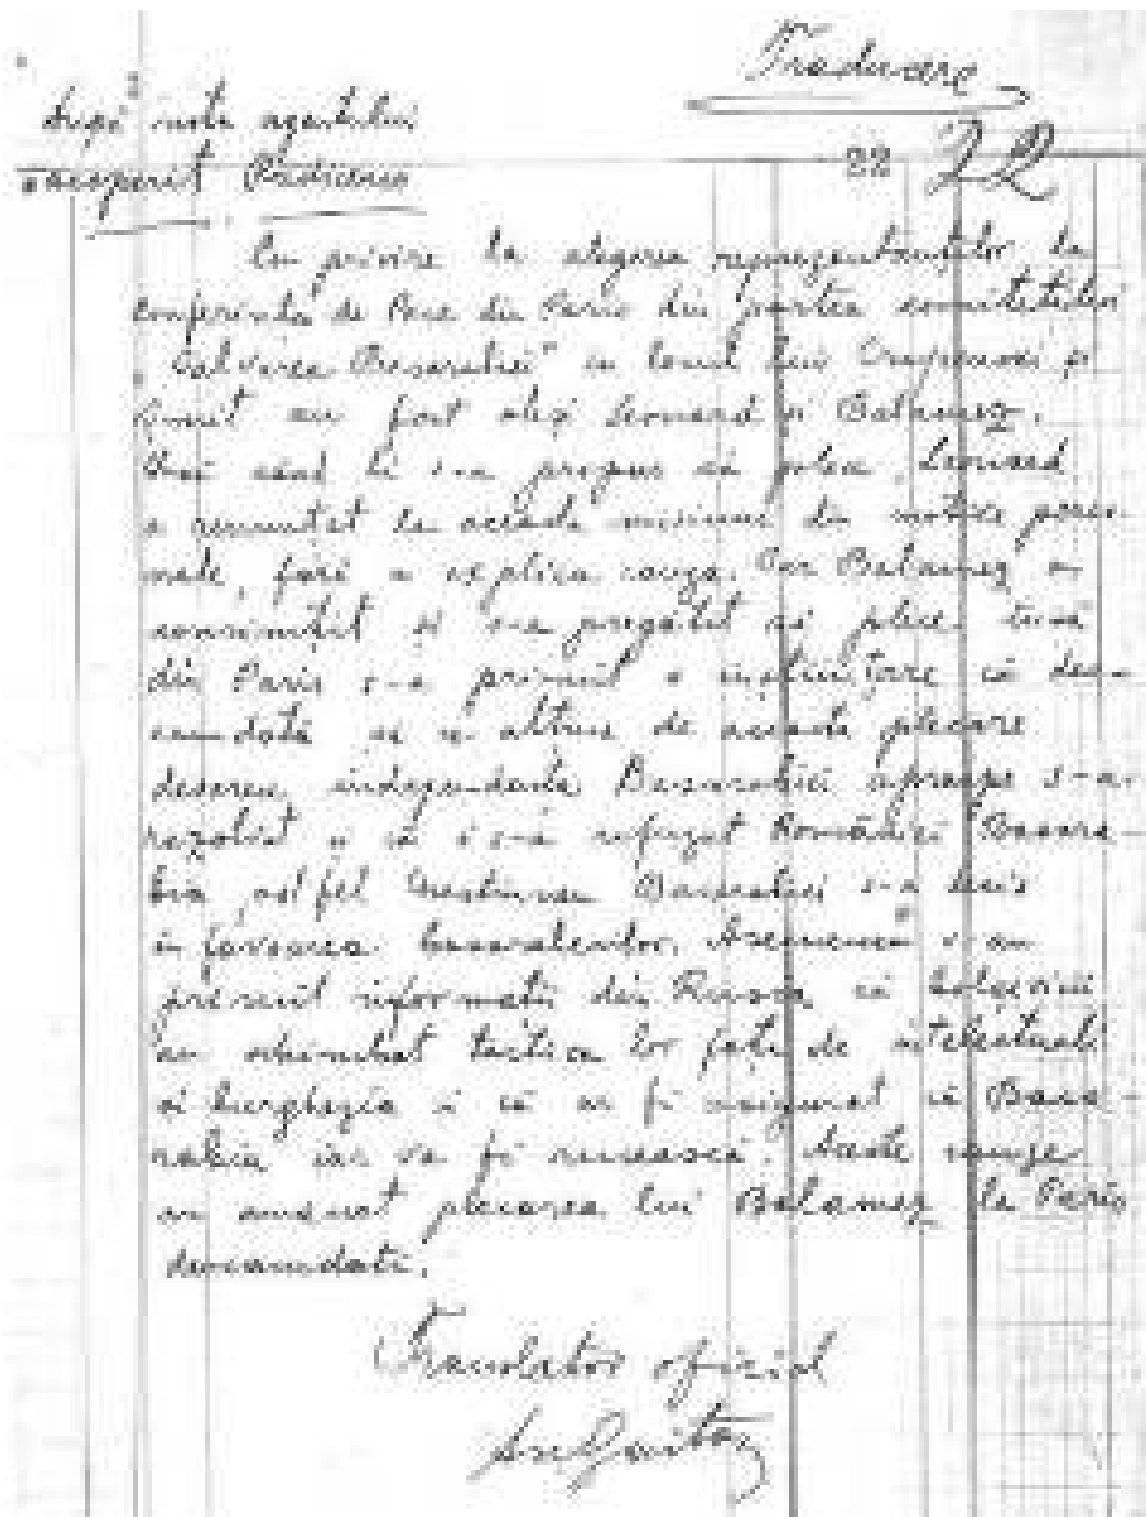 Traducere
După nota agentului
acoperit
22 22
Cu privire la alegerea reprezentanților la
conferința de Pace din Paris din partea comitetului
"Salvarea Basarabiei" în locul lui Crupenski și
Șmit au fost aleși Leonard și Balamez.
Însă când li s-a propus să plece, Leonard
a renunțat la această misiune din motive perso-
nale, fără a explica cauza. Iar Balamez a
consimțit și s-a pregătit să plece. însă
din Paris s-a primit o înștiințare că deo-
camdată să se abțină de această plecare
deoarece independența Basarabiei aproape s-a
rezolvat și că s-a refuzat României Basara-
bia, astfel chestiunea Basarabiei s-a decis
în favoarea basarabenilor. Asemenea s-au
primit informații din Rusia, că bolșevicii
au schimbat tactica lor față de intelectuali
și burghezia și că ar fi asigurat că Basa-
rabia iar va fi rusească. Aceste cauze
au amânat plecarea lui Balamez la Paris
deocamdată.
Translator oficial